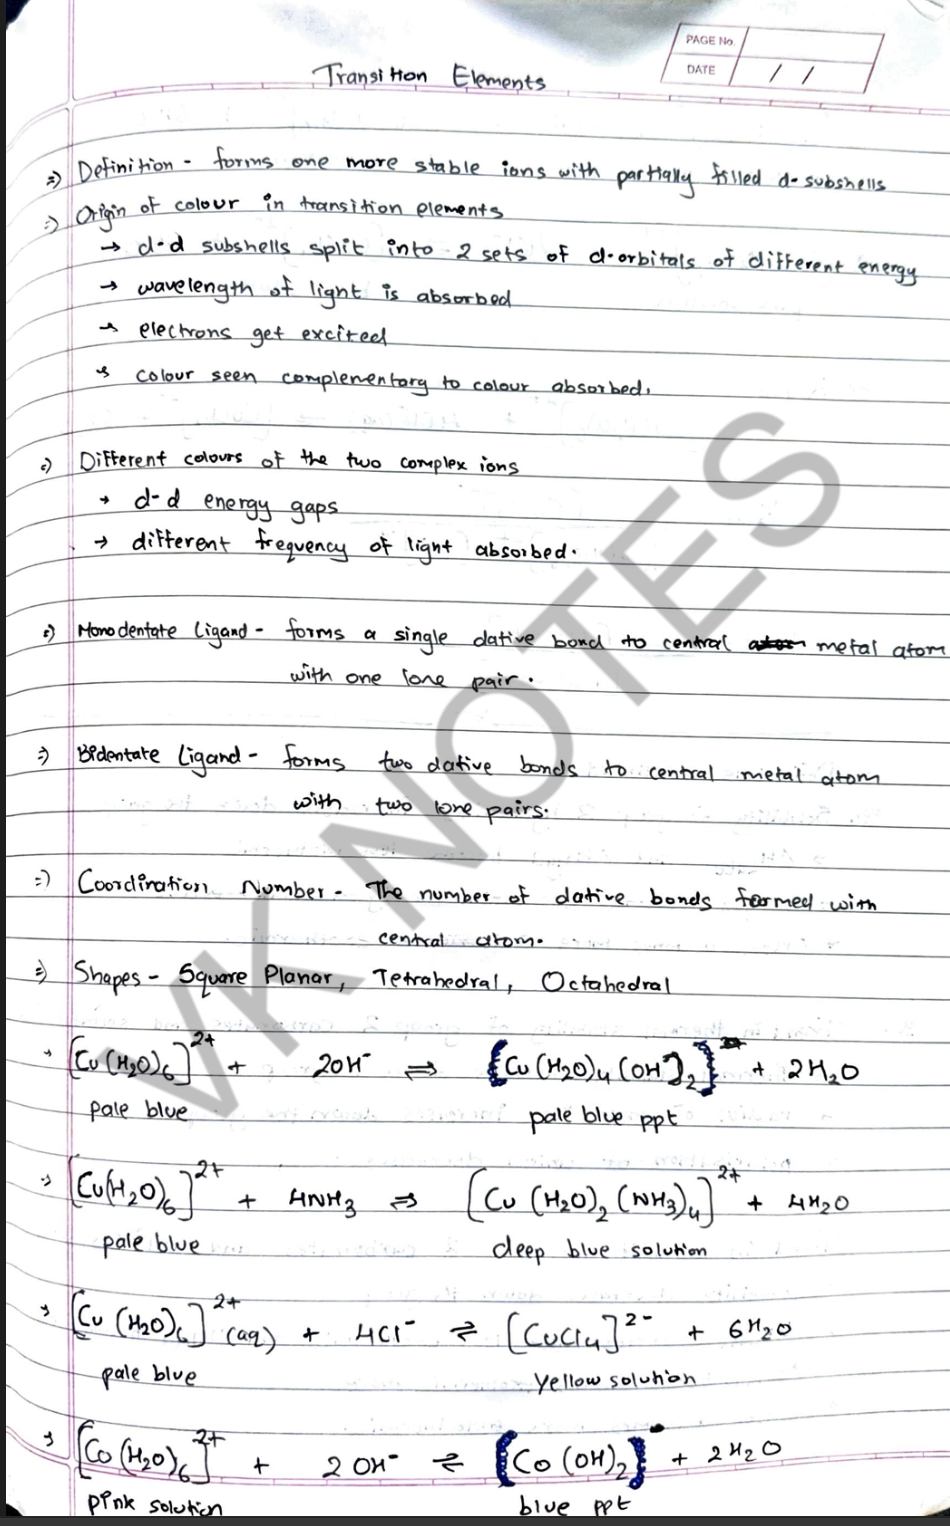 PAGE No.
DATE / /
Transition Elements
=) Definition - forms one more stable ions with partially filled d-subshells
=) Origin of colour in transition elements
→ d-d subshells split into 2 sets of d-orbitals of different energy
→ wavelength of light is absorbed
→ electrons get excited
→ colour seen complementary to colour absorbed.
=) Different colours of the two complex ions
→ d-d energy gaps
→ different frequency of light absorbed.
=) Monodentate Ligand - forms a single dative bond to central atom metal atom
with one lone pair.
=) Bidentate Ligand - forms two dative bonds to central metal atom
with two lone pairs.
=) Coordination Number - The number of dative bonds formed with
central atom.
=) Shapes - Square Planar, Tetrahedral, Octahedral
→ [Cu(H2O)6]2+ + 2OH- ⇌ [Cu(H2O)4(OH)2] + 2H2O
pale blue pale blue ppt
→ [Cu(H2O)6]2+ + 4NH3 ⇌ [Cu(H2O)2(NH3)4]2+ + 4H2O
pale blue deep blue solution
→ [Cu(H2O)6]2+ (aq) + 4Cl- ⇌ [CuCl4]2- + 6H2O
pale blue yellow solution
→ [Co(H2O)6]2+ + 2OH- ⇌ [Co(OH)2] + 2H2O
pink solution blue ppt
VK NOTES